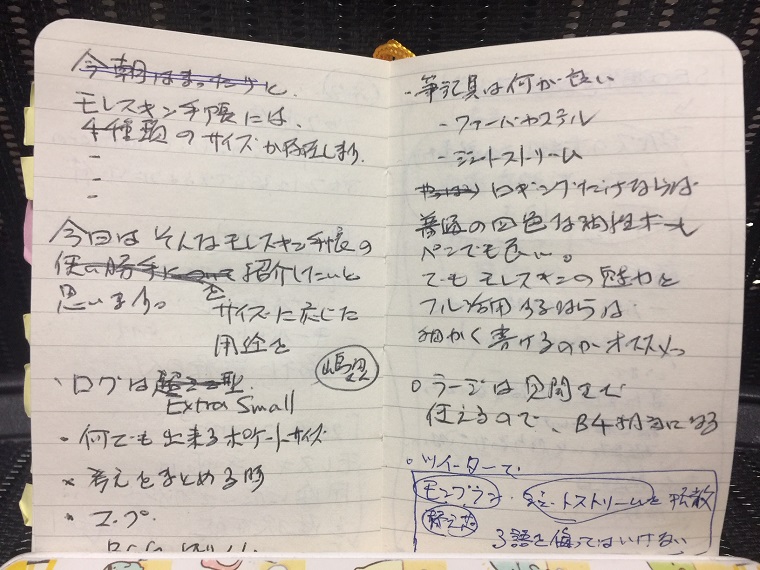 今朝はまったりと、
モレスキン手帳には、
4種類のサイズが存在します。
-
-
-
今回はそんなモレスキン手帳の
使い勝手について紹介したいと
思います。 を
サイズに応じた
用途を
・ログは超小型
Extra Small
・何でも出来るポケットサイズ
* 考えをまとめる時
*
・筆記具は何が良い
- ファーバーカステル
- ジェットストリーム
やっぱり ロギングだけならば
普通の四色な油性ボール
ペンでも良い。
でもモレスキンの魅力を
フル活用するならば
細かく書けるのがオススメ。
○ラージは見開きで
使えるので、B4相当になる
○ツイーターで
モンブラン・ジェットストリームと 拡散
替え芯
る語を使ってはいけない